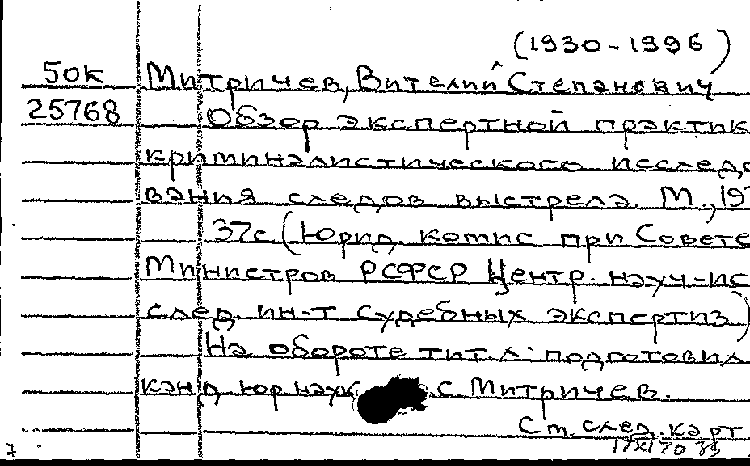 (1930-1996)
50к Митричев, Виталий Степанович
25768 Обзор экспертной практик
криминалистического исследо
вания следов выстрела. М., 19
37с. (Юрид. комис при Совете
Министров РСФСР Центр. науч-ис
след. ин-т судебных экспертиз)
На обороте тит. л: подготовил
канд юр наук С. Митричев.
См. след. карт